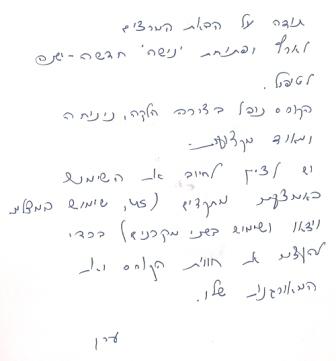 תודה על הבאת המרצים
לארץ ופתיחת "גישה" חדשה-ישנה
לטיפול.
הקורס נופל בצורה חלקה, נינוחה
ומאוד מקצועית.
יש לציין לחיוב את השימוש
באמצעים מתקדמים (US, שימוש במצלמת
וידאו ושימוש בשני מקרנים) בכדי
להעצים את חווית הקורס ואת
המאורגנות שלו.
ערן